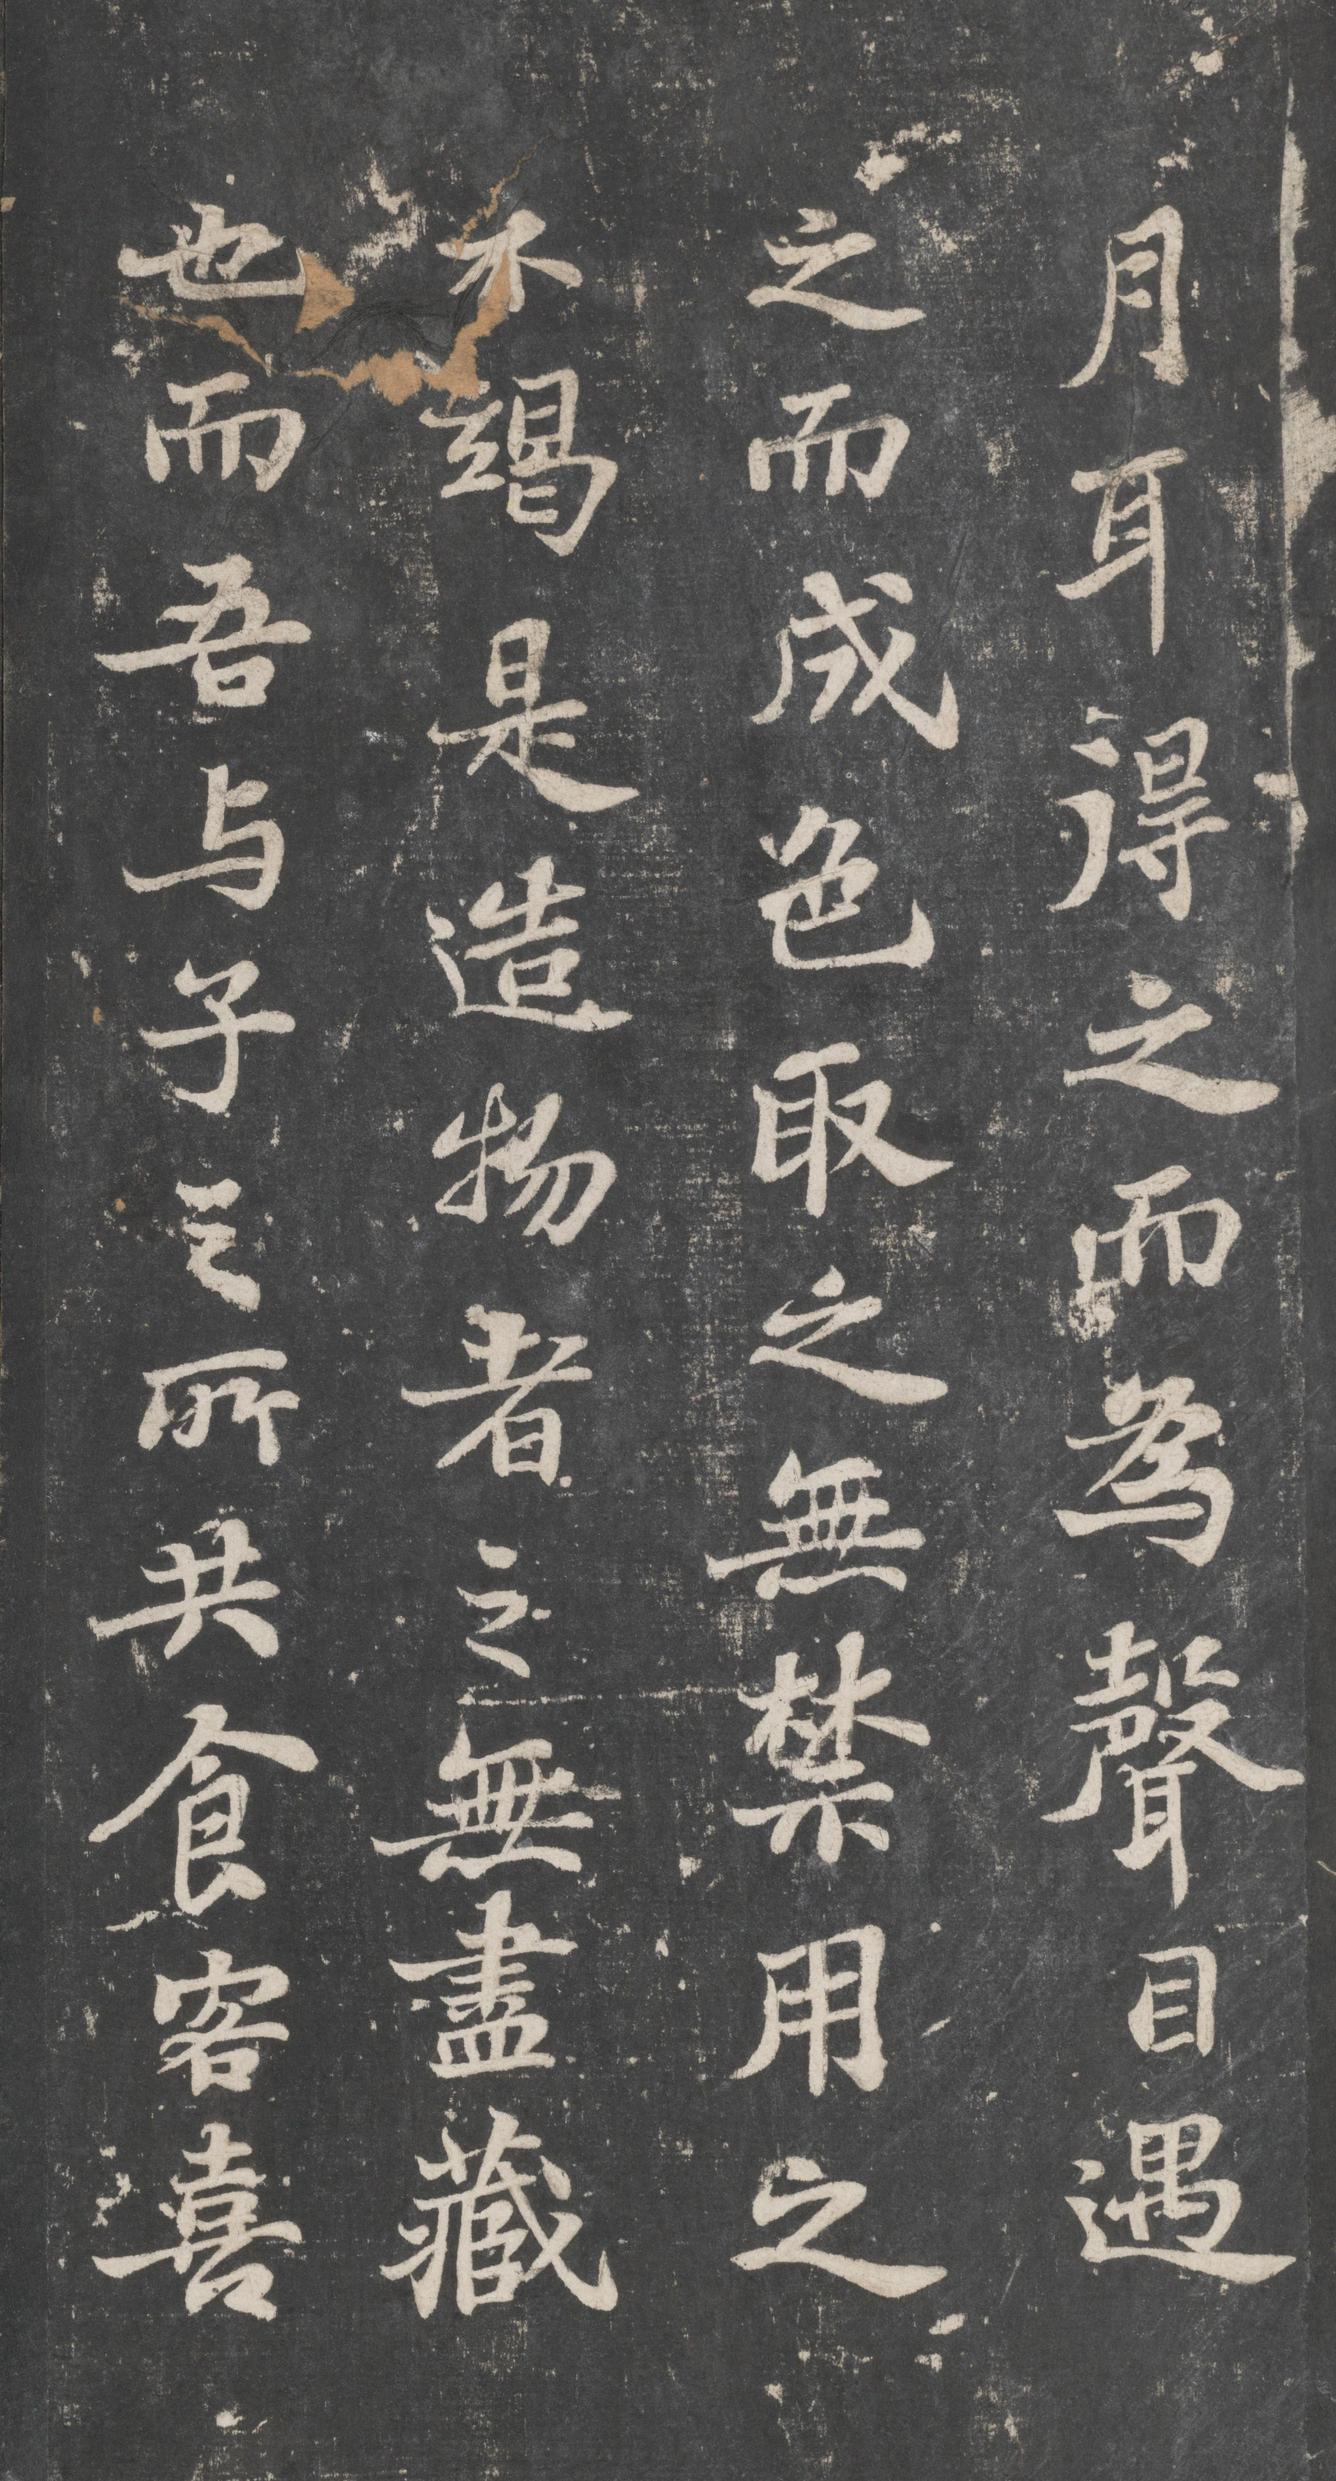 月耳得之而為聲目遇
之而成色取之無禁用之
不竭是造物者之無盡藏
也而吾与子之所共食客喜